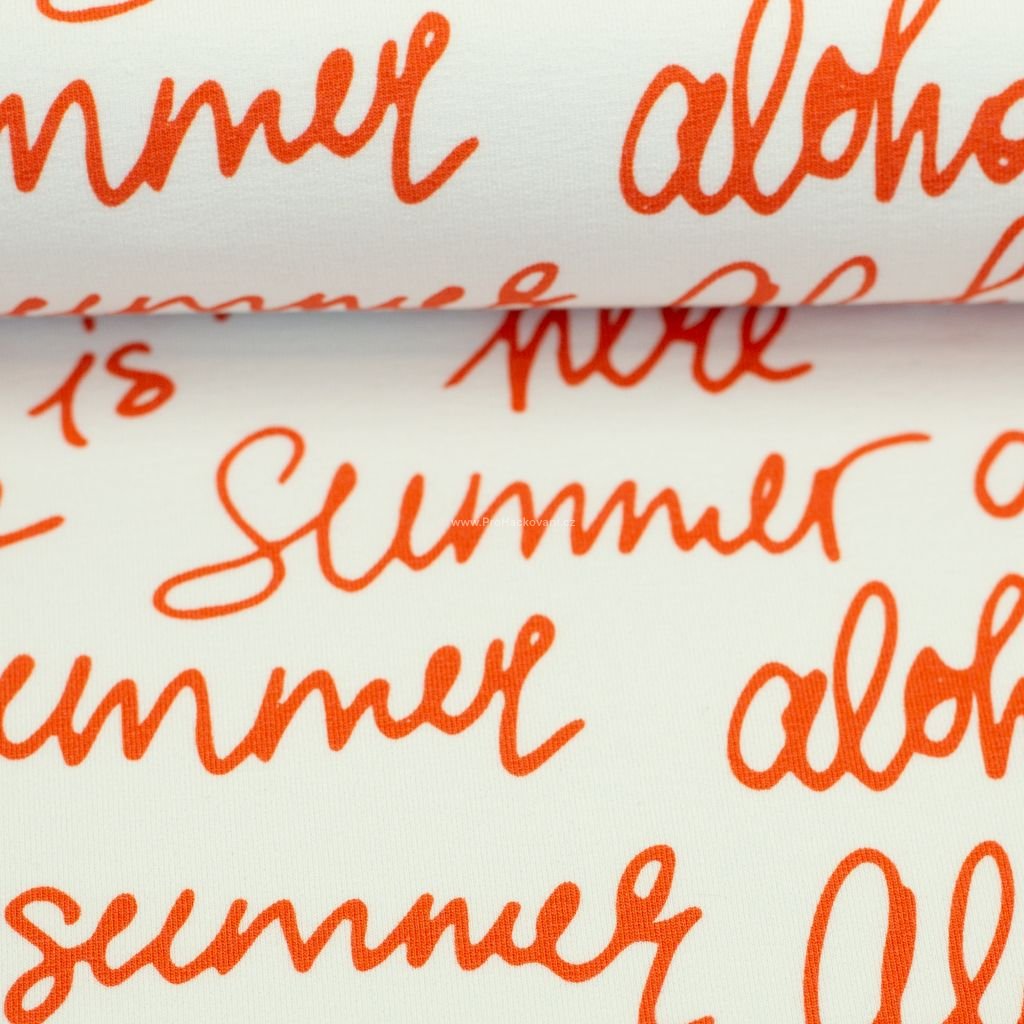 summer aloha
summer
is here
Summer
www.ProHackovani.cz
summer aloh
summer al